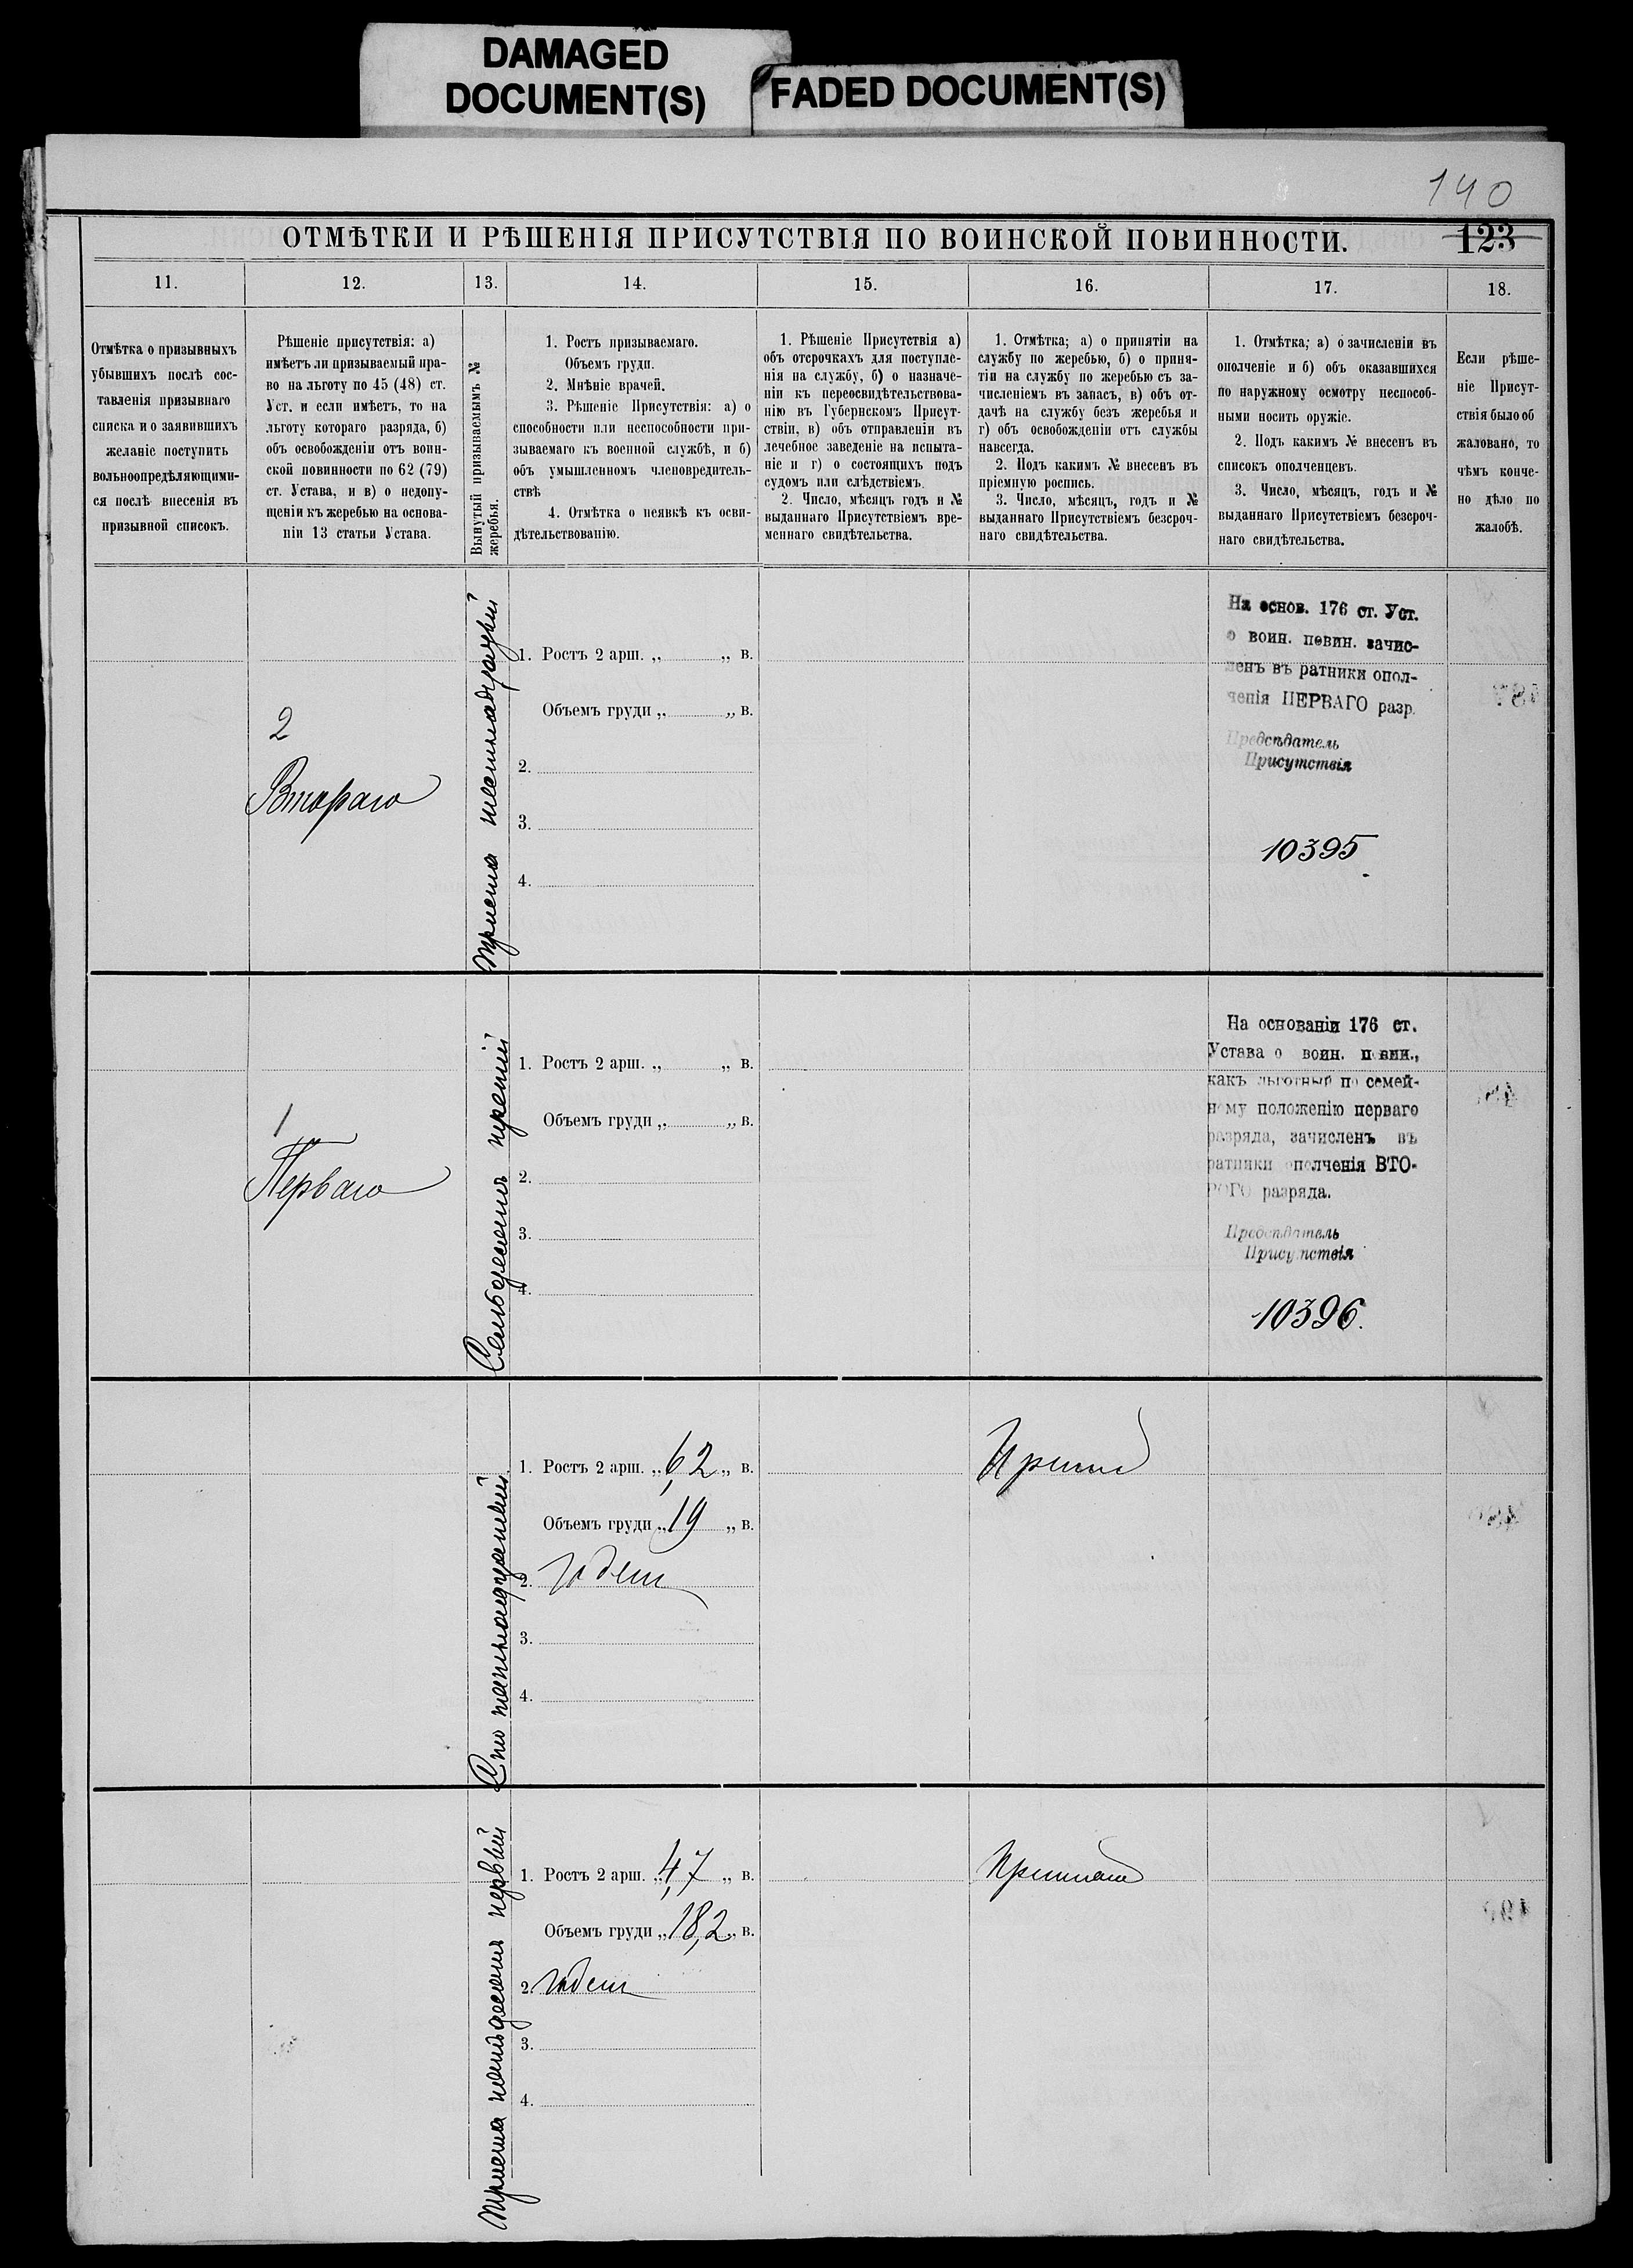 DAMAGED
DOCUMENT(S)
FADED DOCUMENT(S)
140
ОТМѢТКИ И РѢШЕНІЯ ПРИСУТСТВІЯ ПО ВОИНСКОЙ ПОВИННОСТИ.
123
11.
12.
13.
14.
15.
16.
17.
18.
Отмѣтка о призывныхъ
убывшихъ послѣ сос-
тавленія призывнаго
списка и о заявившихъ
желаніе поступить
вольноопредѣляющими-
ся послѣ внесенія въ
призывной списокъ.
Рѣшеніе присутствія: а)
имѣетъ ли призываемый пра-
во на льготу по 45 (48) ст.
Уст. и если имѣетъ, то на
льготу котораго разряда, б)
объ освобожденіи отъ воин-
ской повинности по 62 (79)
ст. Устава, и в) о недопу-
щеніи къ жеребью на основа-
ніи 13 статьи Устава.
Вынутый призываемымъ №
жеребья.
1. Ростъ призываемаго.
Объемъ груди.
2. Мнѣніе врачей.
3. Рѣшеніе Присутствія: а) о
способности или неспособности при-
зываемаго къ военной службѣ, и б)
объ умышленномъ членовредитель-
ствѣ
4. Отмѣтка о неявкѣ къ осви-
дѣтельствованію.
1. Рѣшеніе Присутствія а)
объ отсрочкахъ для поступле-
нія на службу, б) о назначе-
ніи къ переосвидѣтельствова-
нію въ Губернскомъ Присут-
ствіи, в) объ отправленіи въ
лечебное заведеніе на испыта-
ніе и г) о состоящихъ подъ
судомъ или слѣдствіемъ.
2. Число, мѣсяцъ годъ и №
выданнаго Присутствіемъ вре-
меннаго свидѣтельства.
1. Отмѣтка; а) о принятіи на
службу по жеребью, б) о приня-
тіи на службу по жеребью съ за-
численіемъ въ запасъ, в) объ от-
дачѣ на службу безъ жеребья и
г) объ освобожденіи отъ службы
навсегда.
2. Подъ какимъ № внесенъ въ
пріемную роспись.
3. Число, мѣсяцъ, годъ и №
выданнаго Присутствіемъ безсроч-
наго свидѣтельства.
1. Отмѣтка; а) о зачисленіи въ
ополченіе и б) объ оказавшихся
по наружному осмотру неспособ-
ными носить оружіе.
2. Подъ какимъ № внесенъ въ
списокъ ополченцевъ.
3. Число, мѣсяцъ, годъ и №
выданнаго Присутствіемъ безсроч-
наго свидѣтельства.
Если рѣше-
ніе Присут-
ствія было об
жаловано, то
чѣмъ конче-
но дѣло по
жалобѣ.
2
Втораго
Триста шестнадцатый
1. Ростъ 2 арш. „ „ в.
Объемъ груди „ „ в.
2.
3.
4.
На основ. 176 ст. Уст.
о воин. повин. зачис-
ленъ въ ратники опол-
ченія ПЕРВАГО разр.
Предсѣдатель
Присутствія
10395
1
Перваго
Семьдесятъ третій
1. Ростъ 2 арш. „ „ в.
Объемъ груди „ „ в.
2.
3.
4.
На основаніи 176 ст.
Устава о воин. повин.,
какъ льготный по семей-
ному положенію перваго
разряда, зачисленъ въ
ратники ополченія ВТО-
РОГО разряда.
Предсѣдатель
Присутствія
10396.
Сто
1. Ростъ 2 арш. „ 6,2 „ в.
Объемъ груди „ 19 „ в.
2. Годенъ
3.
4.
Принятъ
Триста пятьдесятъ первый
1. Ростъ 2 арш. „ 4,7 „ в.
Объемъ груди „ 18,2 „ в.
2. Годенъ
3.
4.
Принятъ